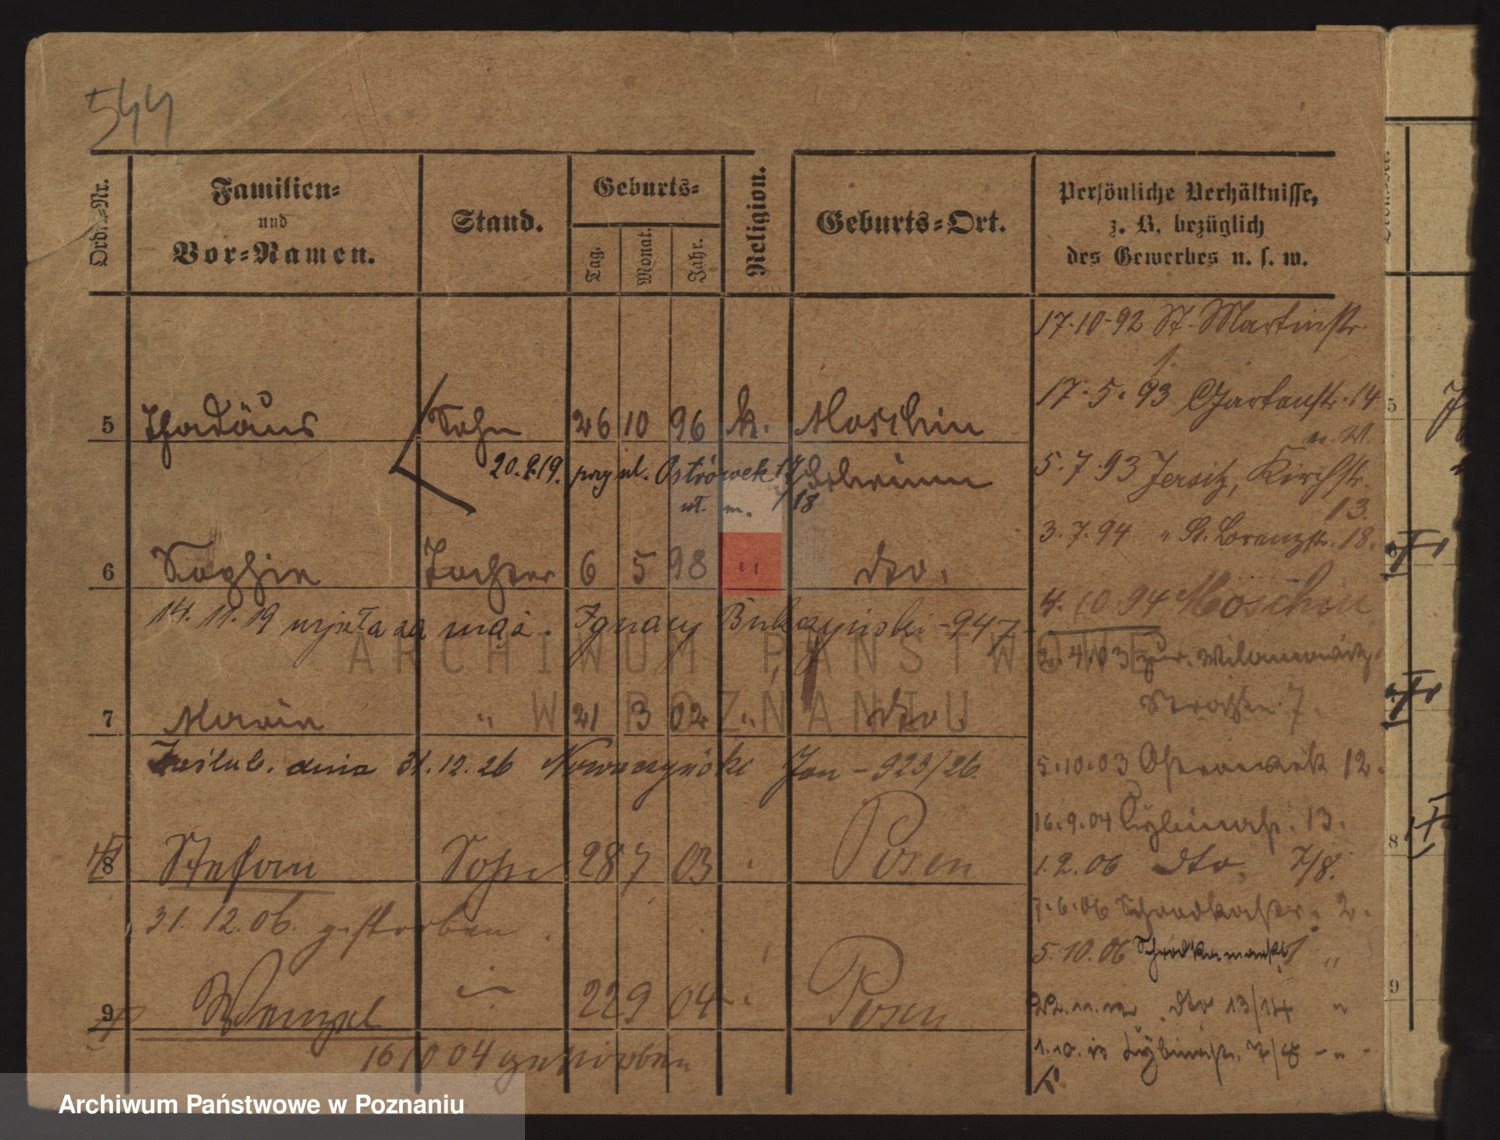 544
Ordn.-Nr.
Familien-
und
Vor-Namen.
Stand.
Geburts-
Tag.
Monat.
Jahr.
Religion.
Geburts-Ort.
Persönliche Verhältnisse,
z. B. bezüglich
des Gewerbes u. s. w.
17.10.92 St. Martinstr.
1.
17.5.93 Gartenstr. 14
5 Thadäus Sohn 26 10 96 k. Moschin
20.9.19. przy ul. Ostrówek 17/18
wł. m.
5.7.93 Jersitz, Kirchstr.
13.
3.7.94 " St. Lorenzstr. 18.
6 Sophie Tochter 6 5 98 " dto.
14.11.19 wzięła za męża Ignacy -947
4.10.94 Moschin
2.4.03 zur. Wilamowitz
Straßen 7.
7 Maria " 21 3 02 " dto.
Zaślub. dnia 31.12.26 Jan - 923/26
5.10.03 Ostrowek 12.
16.9.04 Cybinastr. 13.
8 Stefan Sohn 28 7 03 " Posen
1.2.06 dto. 7/8.
31.12.06. gestorben.
7.6.06 2.
5.10.06 1 "
9 Wenzel " 22 9 04 " Posen
dto 13/14 "
16 10 04 gestorben
Cybinastr. 7/8 - " -
ARCHIWUM PAŃSTWOWE
W POZNANIU
Archiwum Państwowe w Poznaniu
5
8
9